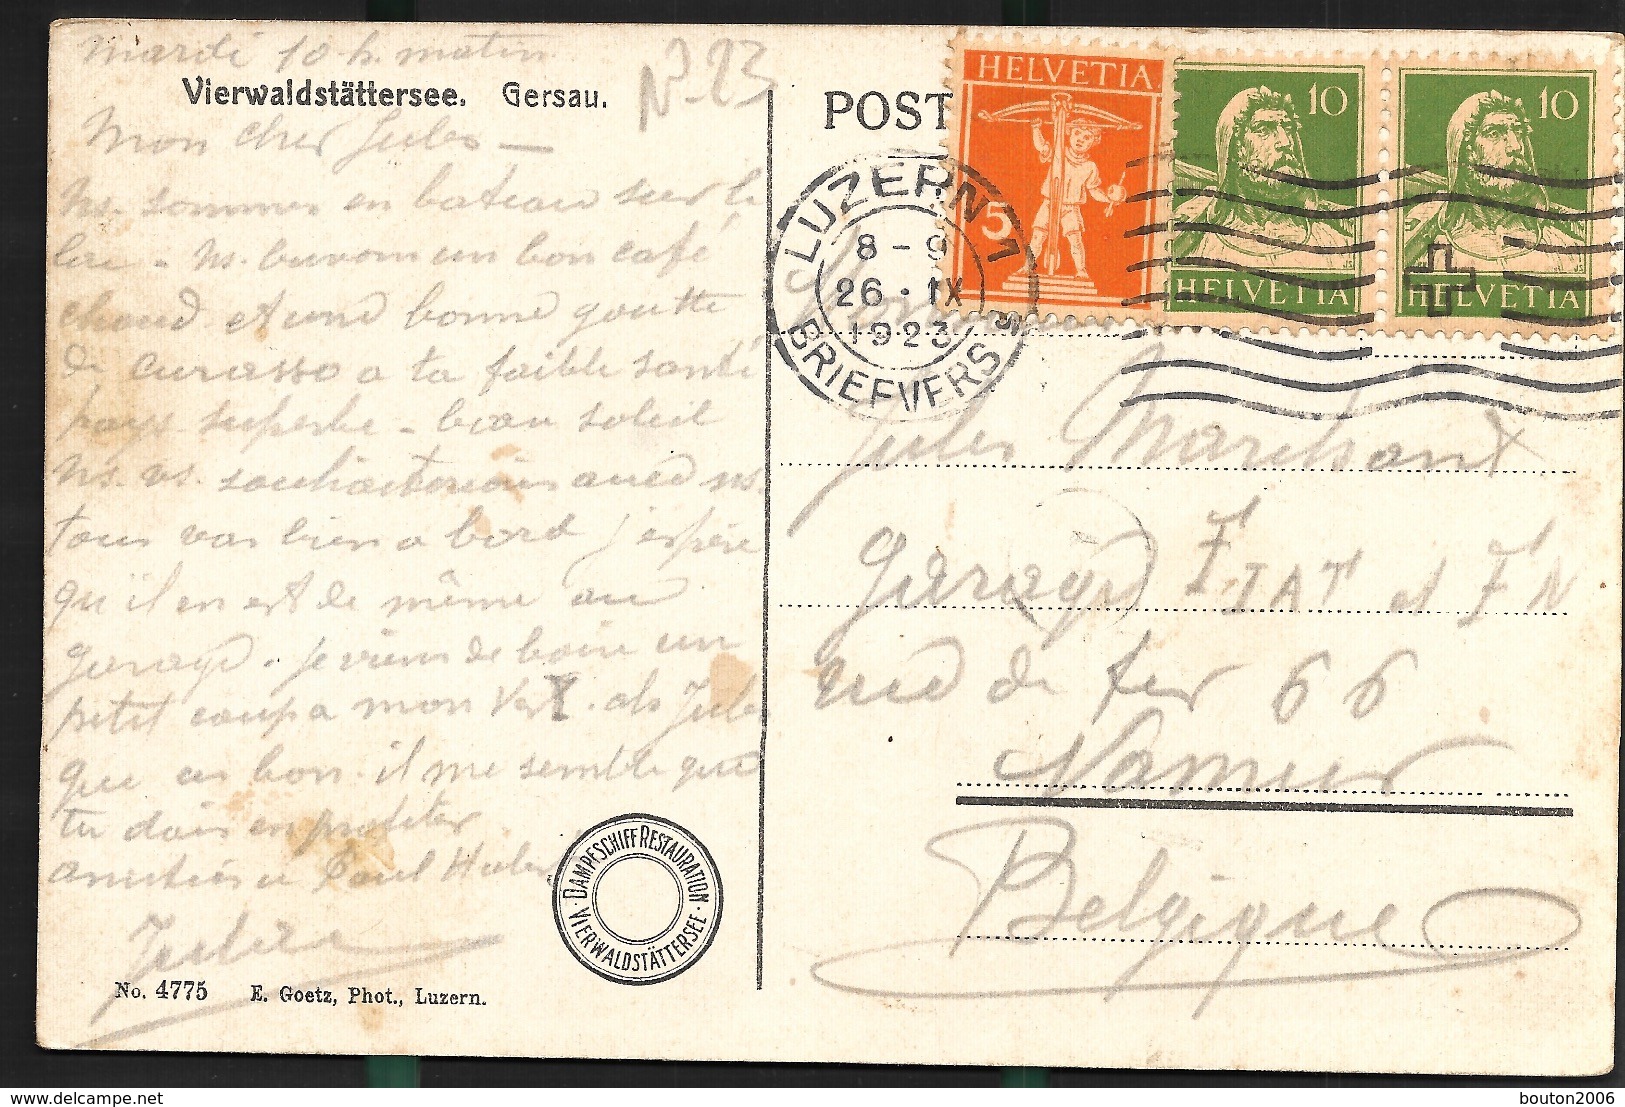 Mardi 10 h. matin
N° 23
Vierwaldstättersee. Gersau.
Mon cher Jules —
ns. sommes en bateau sur le
lac - ns. buvons un bon café
chaud et une bonne goutte
de curasso a ta faible santé
pays superbe - beau soleil
ns. vs. souhaiterions avec ns.
tous vas bien a bord j'espère
qu'il en est de même au
garage. je viens de boire un
petit coup a mon
que c'es bon. il me semble que
tu dois en profiter
amitiés a Paul
Jules
No. 4775 E. Goetz, Phot., Luzern.
DAMPFSCHIFF RESTAURATION
VIERWALDSTÄTTERSEE
POST
HELVETIA
5
10
HELVETIA
10
HELVETIA
LUZERN 1
8-9
26.IX
1923
BRIEFVERS
Monsieur
Jules Marchant
Garage FIAT et FN
rue de fer 66
Namur
Belgique
delcampe.net
bouton2006